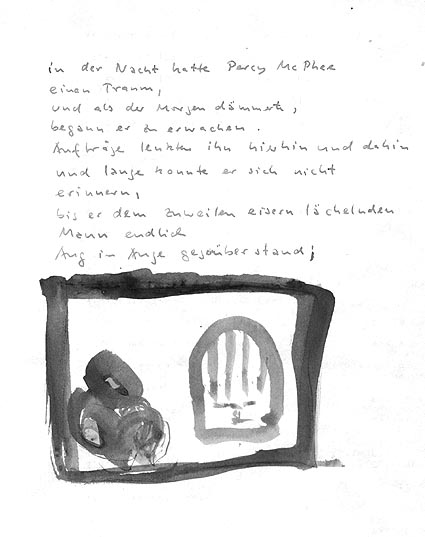 in der Nacht hatte Percy McPhee
einen Traum,
und als der Morgen dämmerte,
begann er zu erwachen.
Aufträge lenkten ihn hierhin und dahin
und lange konnte er sich nicht
erinnern,
bis er dem zuweilen eisern lächelnden
Mann endlich
Aug in Auge gegenüberstand;